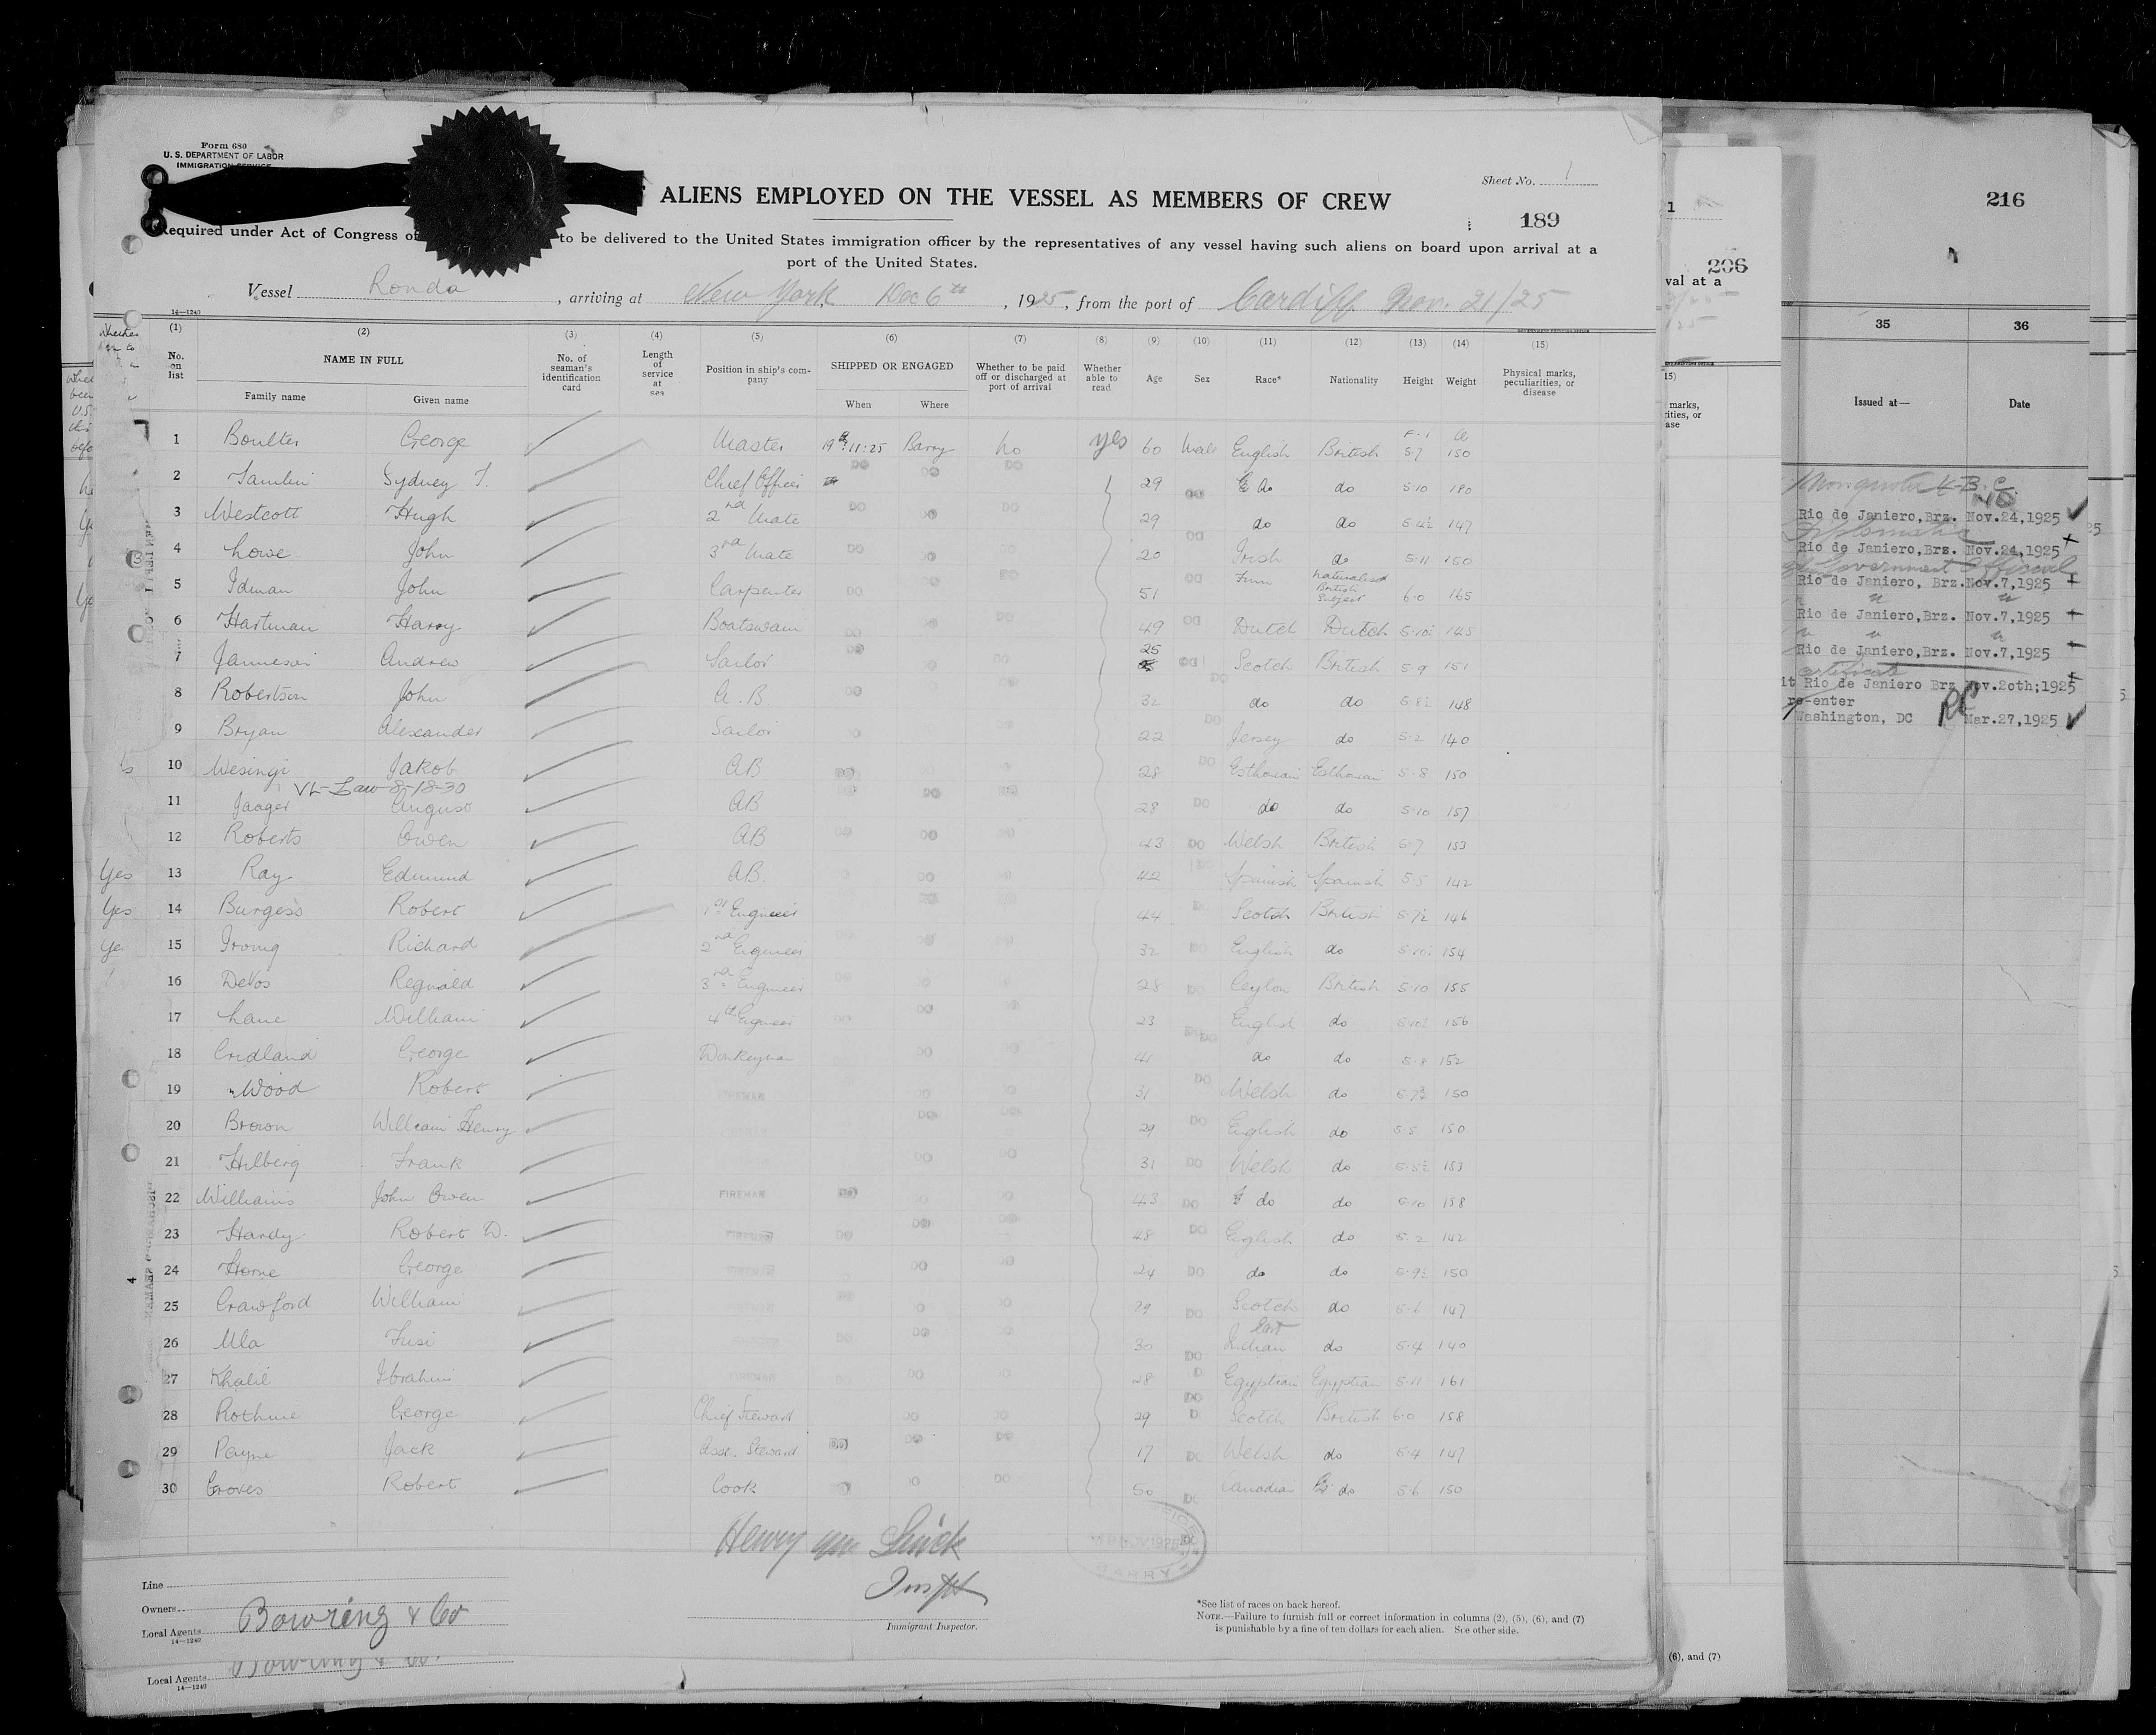 Form 680
U. S. DEPARTMENT OF LABOR
IMMIGRATION SERVICE
Sheet No. 1
ALIENS EMPLOYED ON THE VESSEL AS MEMBERS OF CREW
189
Required under Act of Congress of to be delivered to the United States immigration officer by the representatives of any vessel having such aliens on board upon arrival at a
port of the United States.
Vessel Ronda, arriving at New York Dec 6th, 1925, from the port of Cardiff Nov. 21/25
14—1240
(1) (2) (3) (4) (5) (6) (7) (8) (9) (10) (11) (12) (13) (14) (15)
No. on list NAME IN FULL No. of seaman's identification card Length of service at sea Position in ship's company SHIPPED OR ENGAGED Whether to be paid off or discharged at port of arrival Whether able to read Age Sex Race* Nationality Height Weight Physical marks, peculiarities, or disease
Family name Given name When Where
1 Boulter George Master 19:11:25 Barry No yes 60 Male English British 5·7 150
2 Tamlin Sydney T. Chief Officer DO DO DO 29 DO do do 5·10 180
3 Westcott Hugh 2nd Mate DO DO DO 29 do do 5·4½ 147
4 Lowe John 3rd Mate DO DO DO 20 DO Irish do 5·11 150
5 Idman John Carpenter DO DO DO 51 DO Finn Naturalised British Subject 6·0 165
6 Hartman Harry Boatswain DO DO DO 49 DO Dutch Dutch 5·10½ 145
7 Jamieson Andrew Sailor DO DO DO 25 DO Scotch British 5·9 151
8 Robertson John A.B. DO DO DO 32 DO do do 5·8½ 148
9 Bryan Alexander Sailor DO 22 DO Jersey do 5·2 140
10 Wesingi Jakob AB DO 28 DO Esthonian Esthonian 5·8 150
VL-Law-8-18-30
11 Jaager August AB DO DO DO 28 DO do do 5·10 157
12 Roberts Owen AB DO DO DO 43 DO Welsh British 5·7 153
Yes 13 Ray Edmund AB. DO 42 Spanish Spanish 5·5 142
Yes 14 Burgess Robert 1st Engineer DO DO 44 Scotch British 5·7½ 146
Ye 15 Irving Richard 2nd Engineer DO 32 DO English do 5·10½ 154
16 DeVos Reginald 3rd Engineer DO 28 DO Ceylon British 5·10 155
17 Lane William 4th Engineer DO DO 23 DO English do 156
18 Cridland George Donkeyman DO DO 41 do do 5·8 152
19 Wood Robert FIREMAN DO 31 DO Welsh do 5·7½ 150
20 Brown William Henry DO DO 29 DO English do 5·5 150
21 Hilberg Frank DO DO 31 DO Welsh do 5·5½ 153
22 Williams John Owen FIREMAN DO DO DO 43 DO do do 5·10 158
23 Hardy Robert W. FIREMAN DO DO DO 48 DO English do 5·2 142
24 Horne George FIREMAN DO DO 24 DO do do 5·9½ 150
25 Crawford William DO DO 29 DO Scotch do 5·6 147
26 Ula Fusi DO DO 30 DO East Indian do 5·4 140
27 Khalil Ibrahim FIREMAN DO DO 28 Egyptian Egyptian 5·11 161
28 Rothnie George Chief Steward DO DO 29 DO Scotch British 6·0 158
29 Payne Jack Asst. Steward DO DO DO 17 Welsh do 5·4 147
30 Groves Robert Cook DO DO 50 DO Canadian do 5·6 150
NOV 1925
BARRY
Immigrant Inspector.
Line
Owners
Local Agents Bowring & Co
14—1240
*See list of races on back hereof.
NOTE.—Failure to furnish full or correct information in columns (2), (5), (6), and (7)
is punishable by a fine of ten dollars for each alien. See other side.
Local Agents
14—1240
1
206
val at a
15)
marks,
ities, or
ase
(6), and (7)
216
35 36
Issued at— Date
Rio de Janiero,Brz. Nov.24,1925
Diplomatic
Rio de Janiero,Brz. Nov.24,1925
Government Official
Rio de Janiero, Brz. Nov.7,1925
Rio de Janiero,Brz. Nov.7,1925
Rio de Janiero,Brz. Nov.7,1925
it Rio de Janiero Brz Nov.20th;1925
re-enter
Washington, DC Mar.27,1925